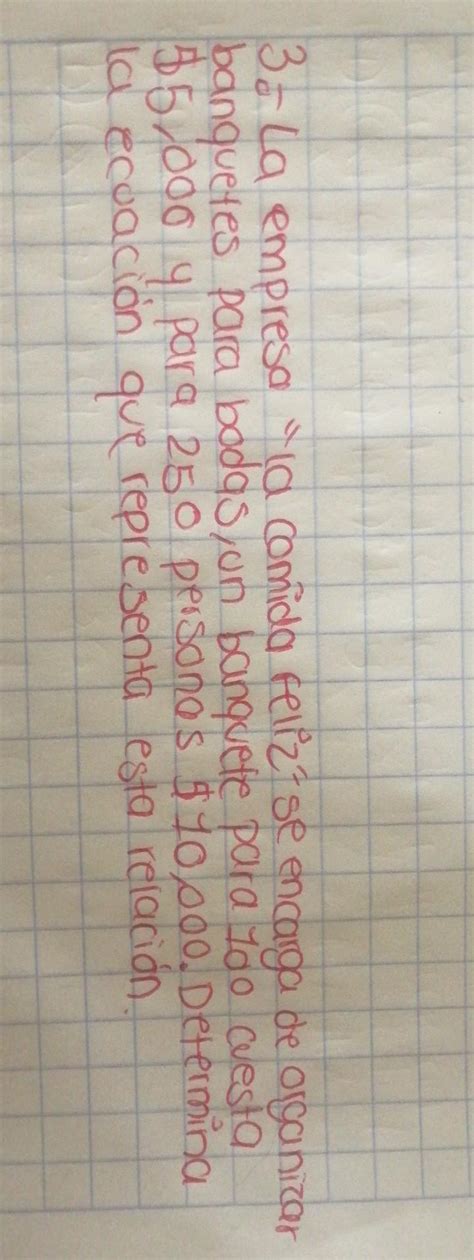 3.- La empresa "la comida feliz" se encarga de organizar
banquetes para bodas, un banquete para 100 cuesta
$5,000 y para 250 personas $10,000. Determina
la ecuación que representa esta relación.